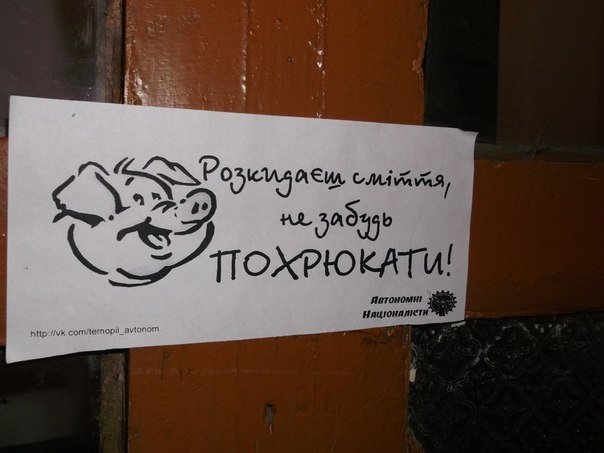 Розкидаєш сміття,
не забудь
ПОХРЮКАТИ!
Автономні
Націоналісти
http://vk.com/ternopil_avtonom